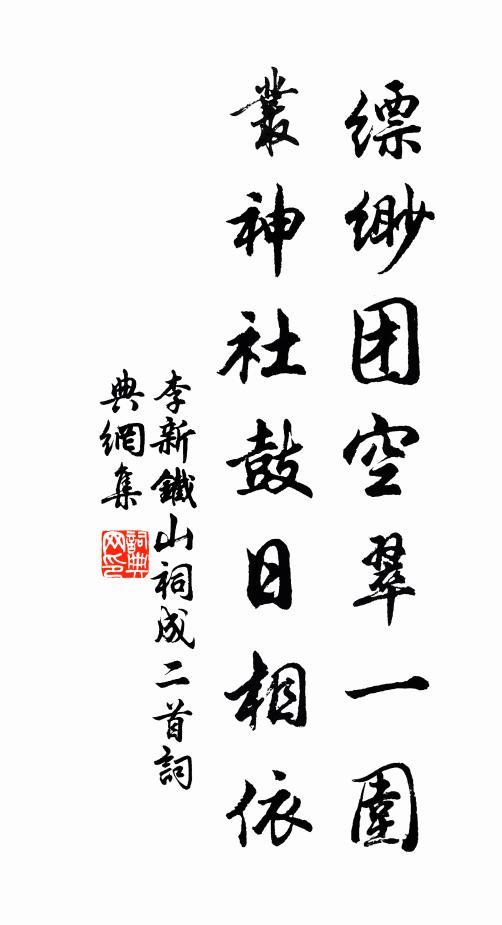 缥缈团空翠一圍
叢神社鼓日相依
李新鐵山祠成二首詞
典網集
詞典網印